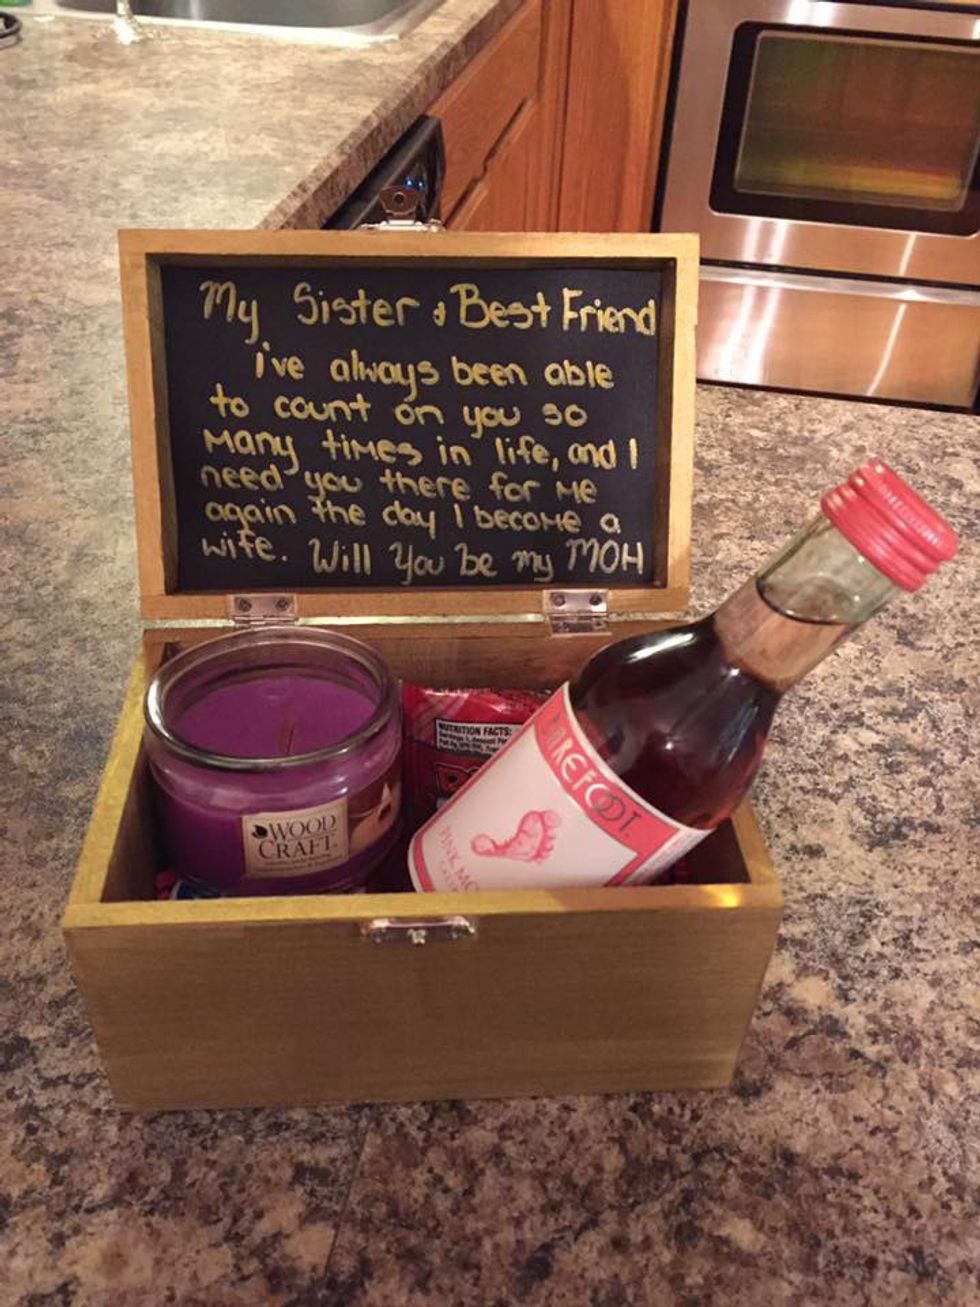 My Sister & Best Friend
i've always been able
to count on you so
many times in life, and I
need you there for me
again the day I become a
wife. Will You be my MOH
NUTRITION FACTS:
WOOD
CRAFT
BAREFOOT
PINK MO